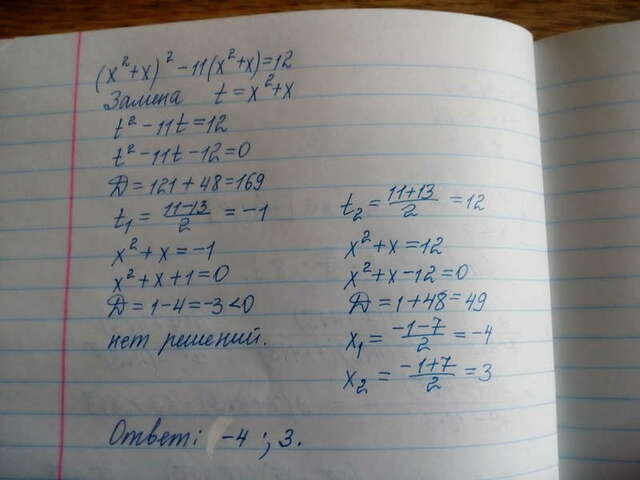 (x²+x)² - 11(x²+x)=12
Замена t = x²+x
t² - 11t = 12
t² - 11t - 12 = 0
D = 121 + 48 = 169
t₁ = (11-13)/2 = -1
x² + x = -1
x² + x + 1 = 0
D = 1 - 4 = -3 < 0
нет решений.
t₂ = (11+13)/2 = 12
x² + x = 12
x² + x - 12 = 0
D = 1 + 48 = 49
x₁ = (-1-7)/2 = -4
x₂ = (-1+7)/2 = 3
Ответ: -4 ; 3.